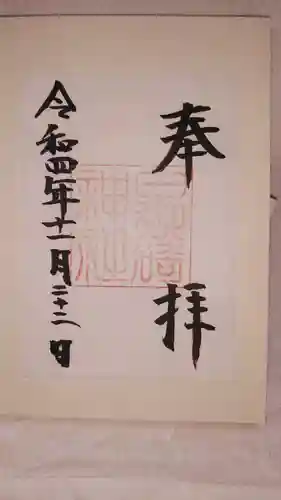 奉拝
令和四年十一月二十二日
神社